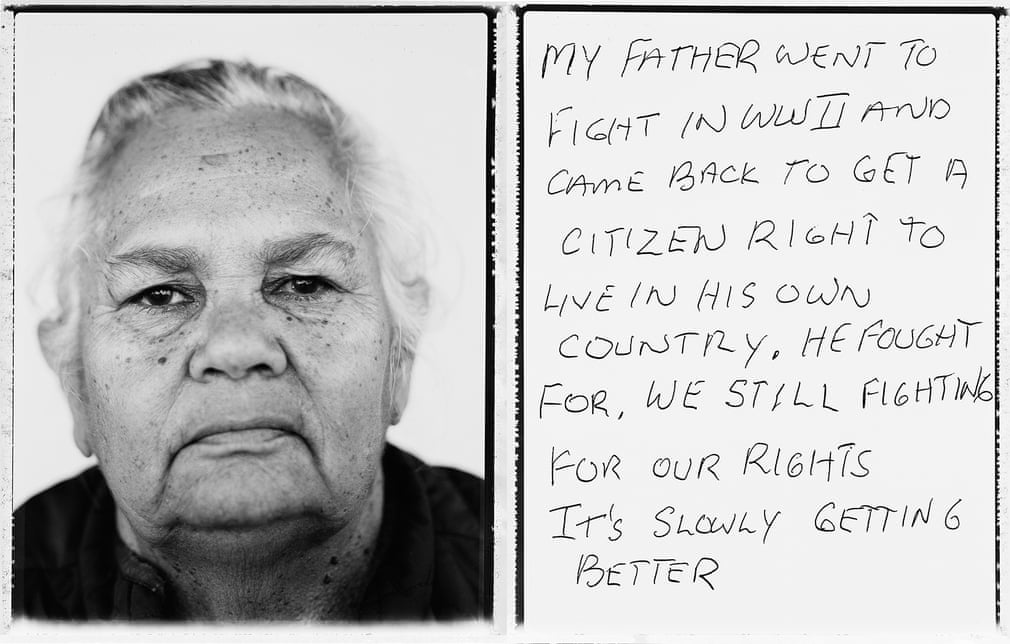 MY FATHER WENT TO
FIGHT IN WWII AND
CAME BACK TO GET A
CITIZEN RIGHT TO
LIVE IN HIS OWN
COUNTRY. HE FOUGHT
FOR, WE STILL FIGHTING
FOR OUR RIGHTS
IT'S SLOWLY GETTING
BETTER